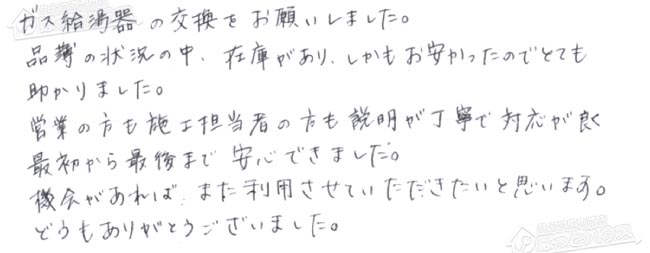 ガス給湯器の交換をお願いしました。
品薄の状況の中、在庫があり、しかもお安かったのでとても
助かりました。
営業の方も施工担当者の方も説明が丁寧で対応が良く
最初から最後まで安心できました。
機会があれば、また利用させていただきたいと思います。
どうもありがとうございました。